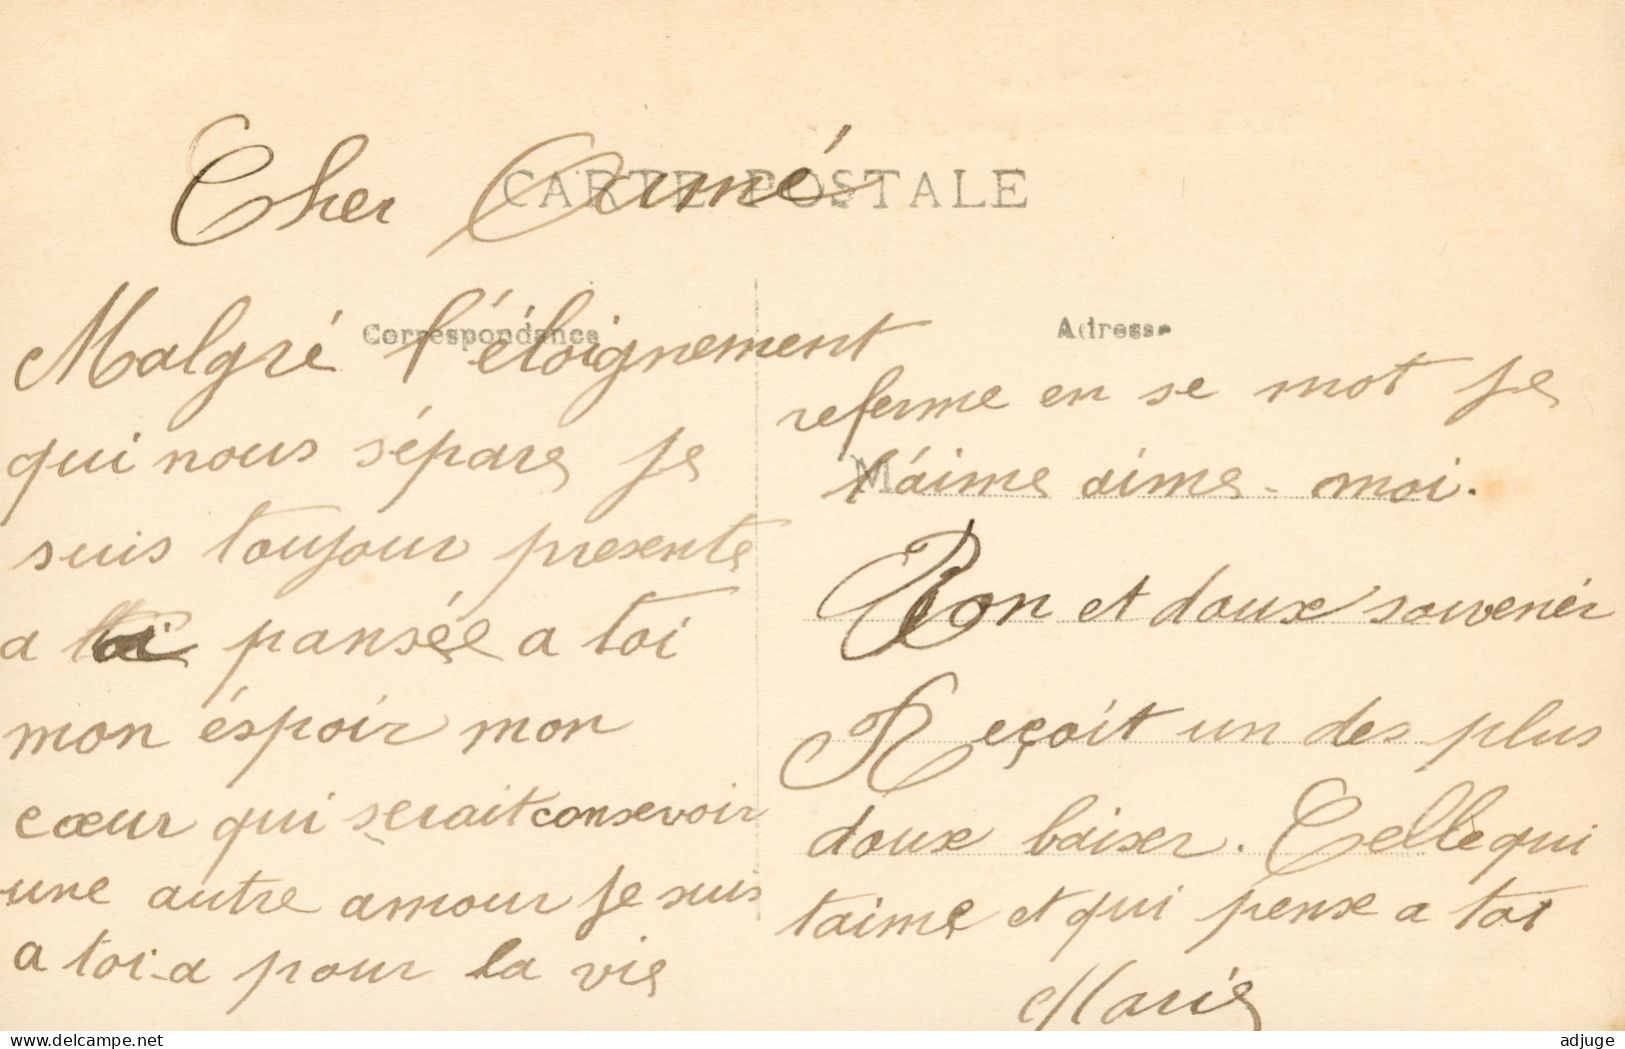 CARTE POSTALE
Cher Aimé
Correspondance
Adresse
Malgré l'éloignement
qui nous sépare je
suis toujour presente
a toi pansée a toi
mon éspoir mon
cœur qui serait consevoir
une autre amour je suis
a toi a pour la vie
referme en se mot je
M
t'aime aime-moi.
Bon et doux souvenir
Reçoit un des plus
doux baiser. Celle qui
taime et qui pense a toi
Marie
delcampe.net
adjuge